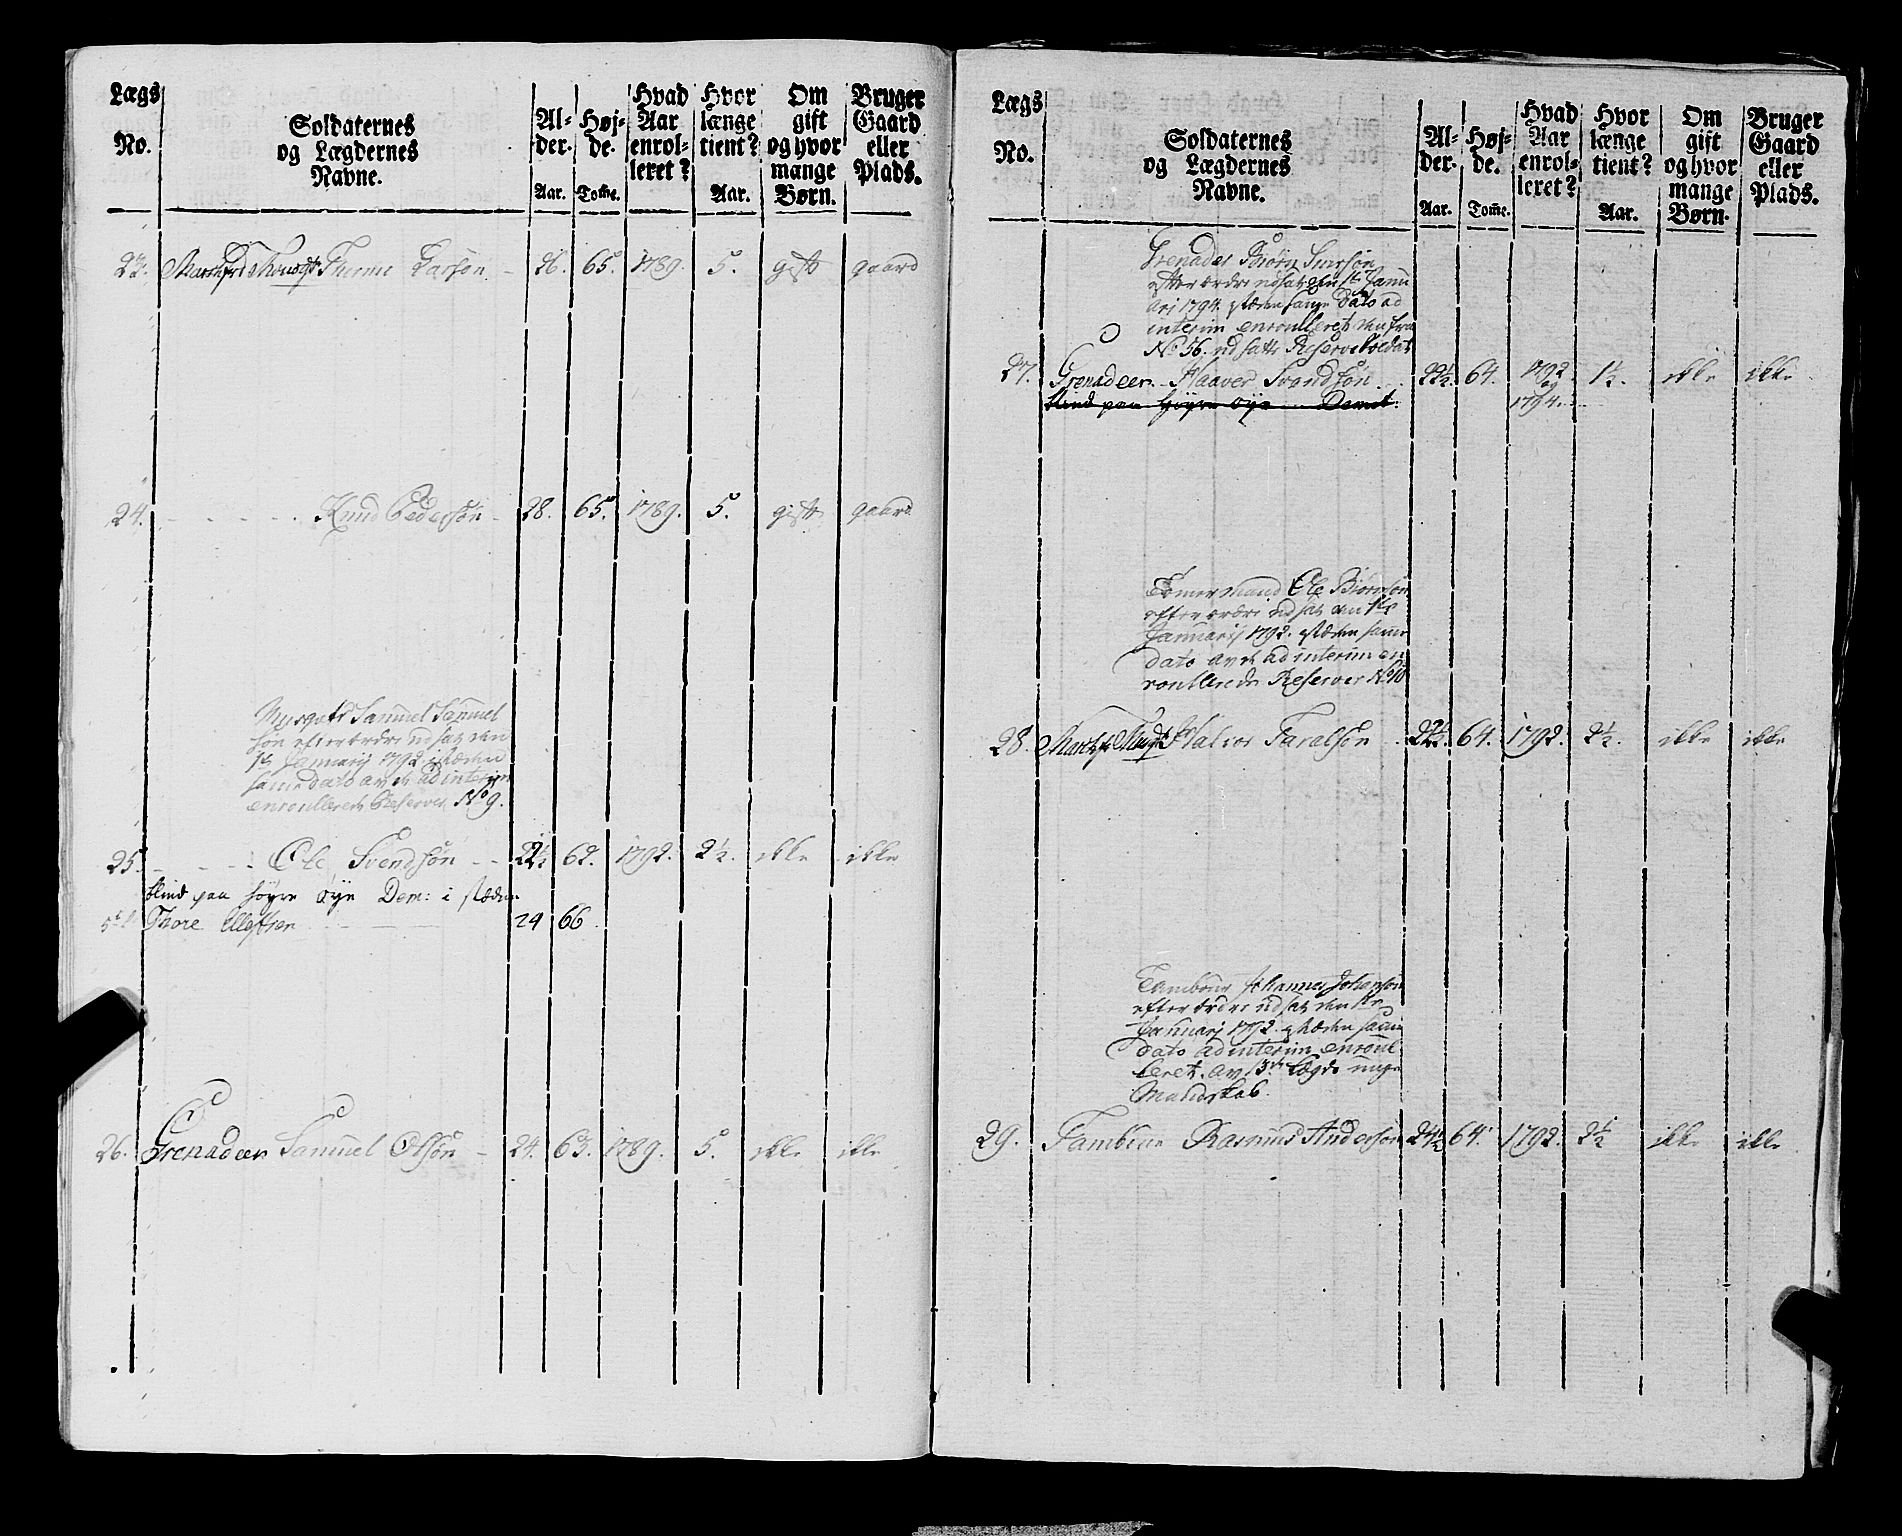 Lægs No. | Soldaternes og Lægdernes Navne. | Al- der. Aar. | Høj- de. Tom̃e. | Hvad Aar enrol= leret? | Hvor længe tient? Aar. | Om gift og hvor mange Børn. | Bruger Gaard eller Plads.
23. Thorme Larsøn - 26. 65. 1789. 5. gift gaard
24. - - - - - Knud Pedersøn - 28. 65. 1789. 5. gift gaard
Musqutr Samuel Samuel
søn efter ordre udsat den
1ste Januarij 1792 i stæden
samme dato av de ad interim
enroullerede Reserver No 9.
25. - - - - Ole Svendsøn - - 22½ 62. 1792. 2½. ikke ikke
blind paa høyre øye Dem: i stæden
Thore Ellefsen - - - 24 66
26. Grenadeer Samuel Olsøn - 24. 63. 1789. 5. ikke ikke
Lægs No. | Soldaternes og Lægdernes Navne. | Al- der. Aar. | Høj- de. Tom̃e. | Hvad Aar enrol= leret? | Hvor længe tient? Aar. | Om gift og hvor mange Børn. | Bruger Gaard eller Plads.
Grenadeer Biørn
efter ordre udsat den 1ste Janu
arj 1794. i stæden samme Dato ad
interim enroulleret den fra
No 56. udsatte Reserve Soldat
27. Grenadeer Haaver Svendsøn 22½. 64. 1792 og 1½. ikke ikke
blind paa høyre øye - - Demit: 1794.
Tømermand Ole Biørnsøn
efter ordre udsat den 1ste
Januarij 1792. i stæden samme
dato av de ad interim en
roullerede Reserver No 10
28. Halvor Taralsøn - 22½. 64. 1792. 2½. ikke ikke
Tambour Johannes Johansøn
efter ordre udsat den 1ste
Januarj 1792. i stæden samme
dato ad interim enroul
leret av 3de Lægds unge
Mandskab.
29. Tambour Rasmus Andersøn 24½ 64. 1792. 2½ ikke ikke